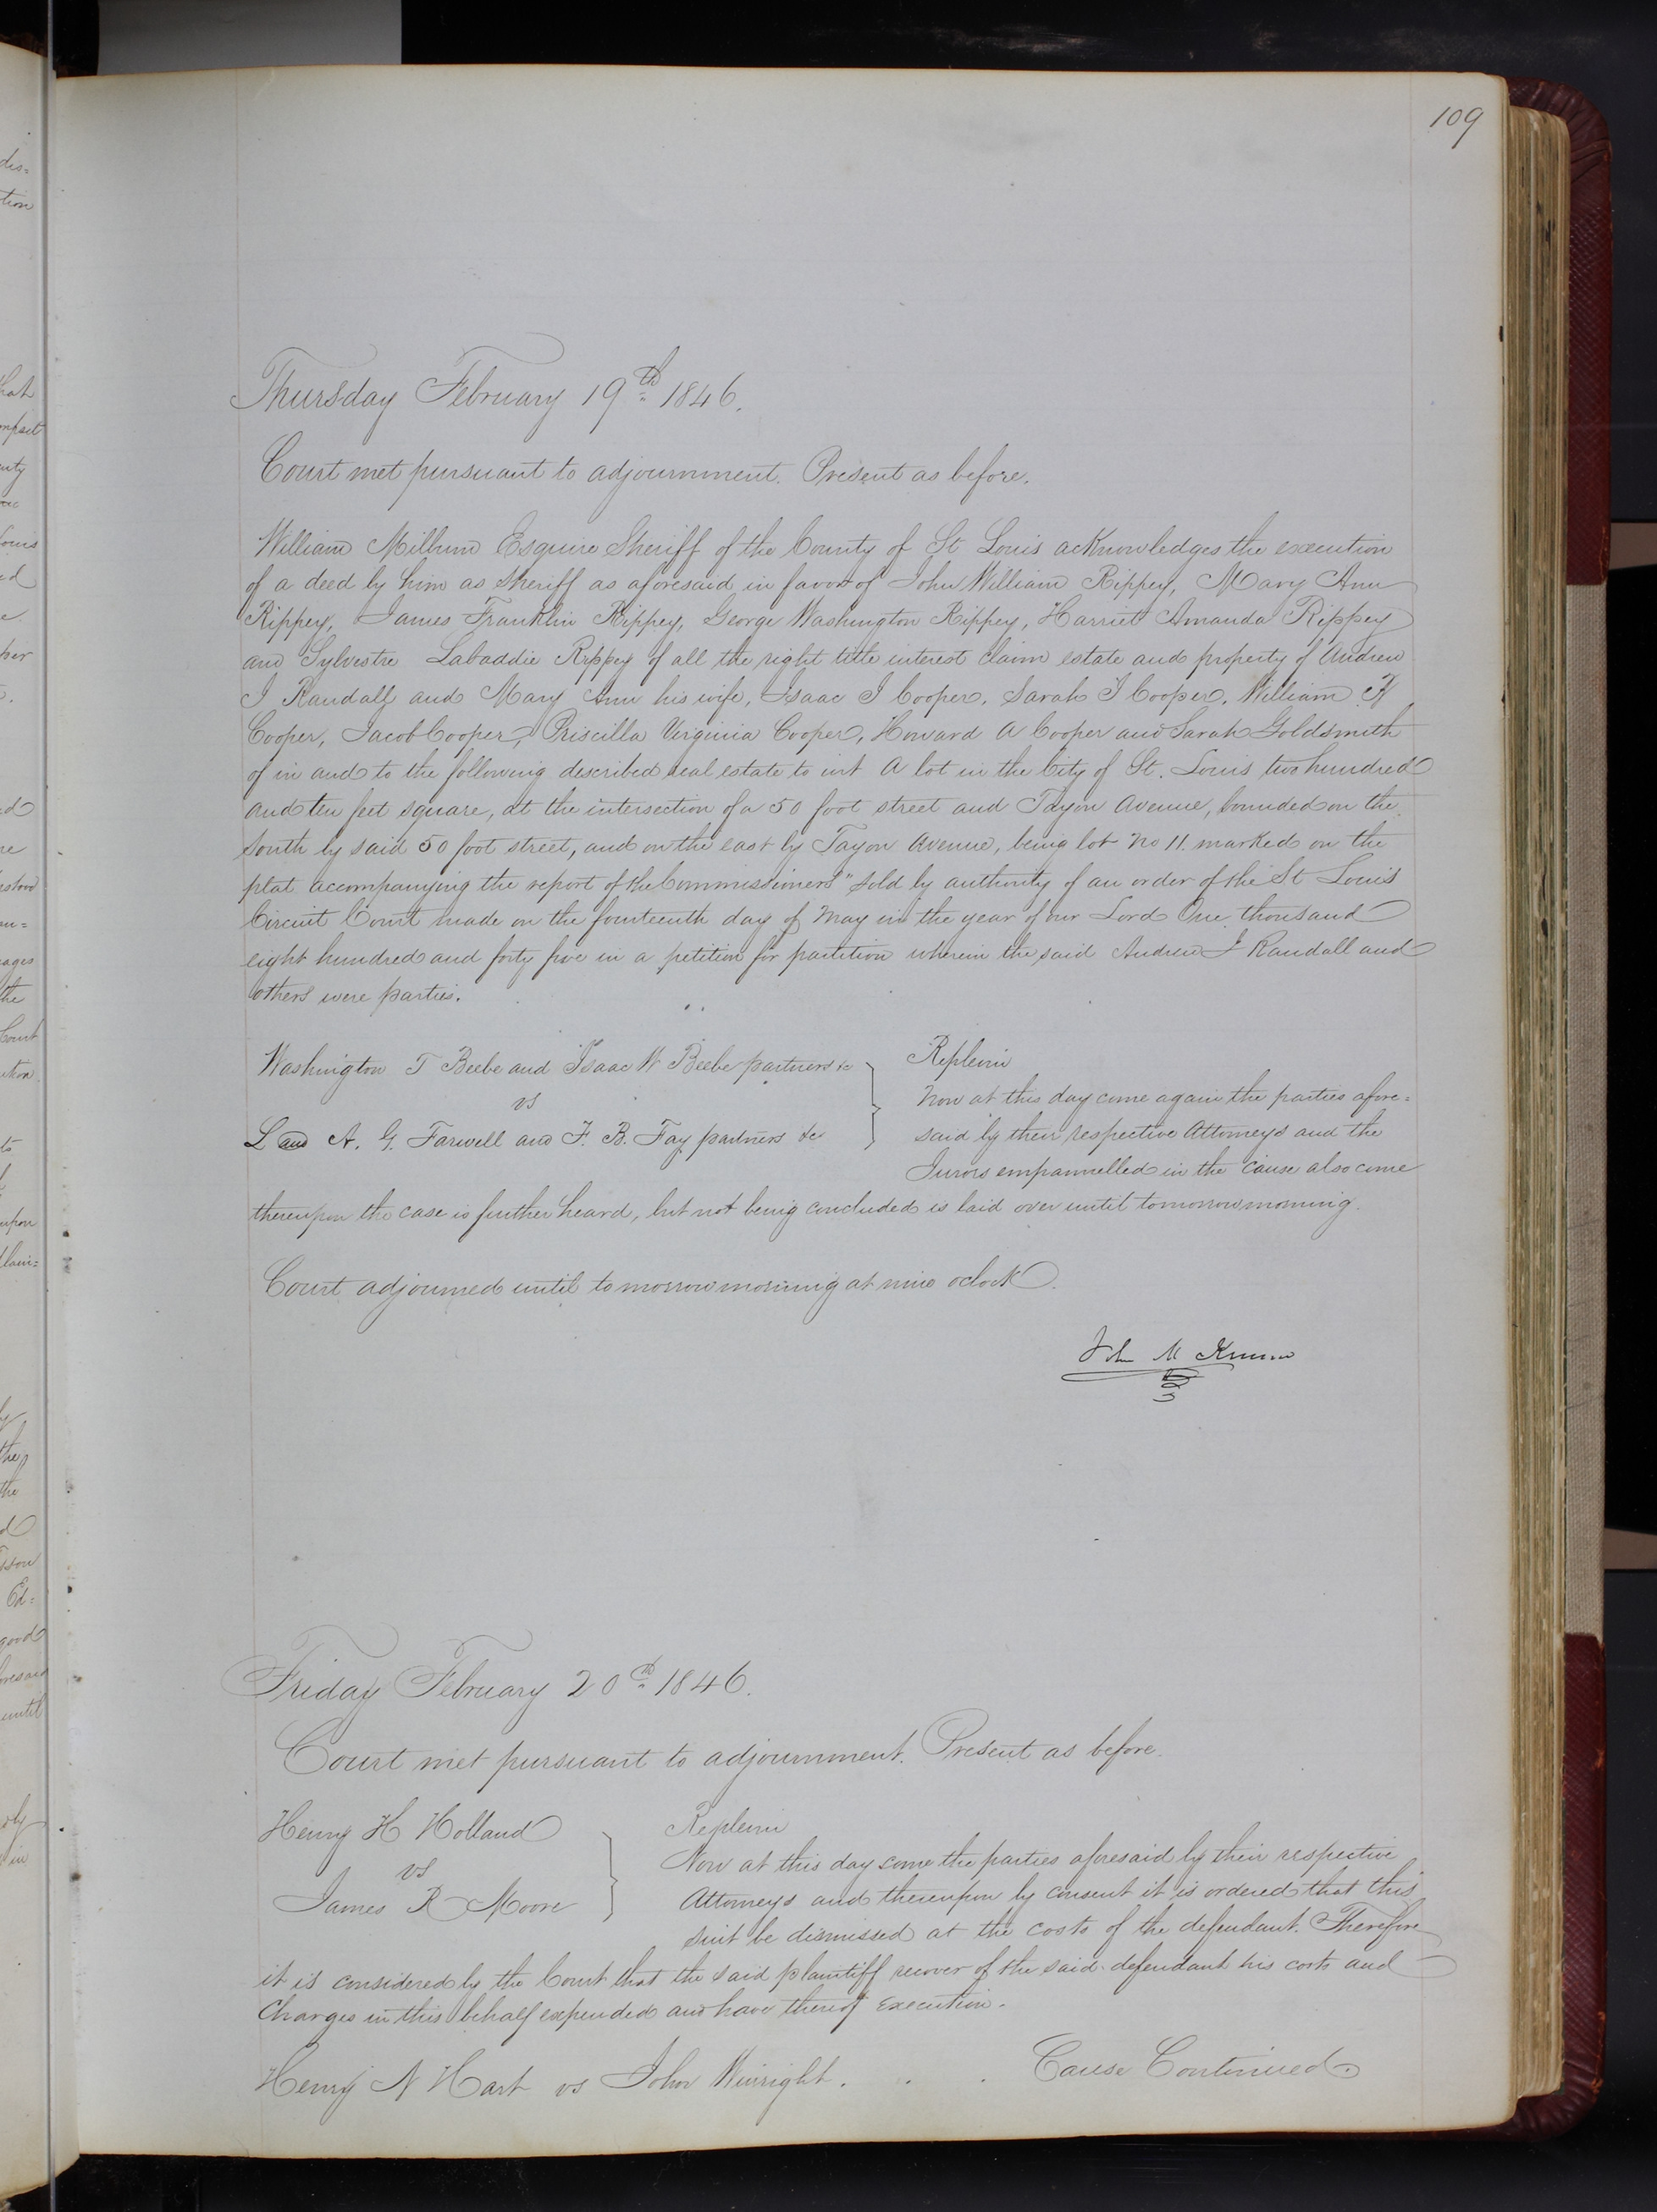 109
Thursday February 19th 1846.
Court met pursuant to adjournment. Present as before.
William Milburn Esquire Sheriff of the County of St Louis acknowledges the execution
of a deed by him as sheriff as aforesaid in favor of John William Rippey, Mary Ann
Rippey, James Franklin Rippey, George Washington Rippey, Harriet Amanda Rippey
and Sylvestre Labaddie Rippey of all the right title interest claim estate and property of Andrew
J Randall and Mary Ann his wife, Isaac J Cooper, Sarah J Cooper, William H
Cooper, Jacob Cooper, Priscilla Virginia Cooper, Howard A Cooper and Sarah Goldsmith
of in and to the following described real estate to wit A lot in the City of St. Louis two hundred
and ten feet square, at the intersection of a 50 foot street and Tayon Avenue, bounded on the
South by said 50 foot street, and on the east by Tayon Avenue, being lot No 11. marked on the
plat accompanying the report of the Commissioners" sold by authority of an order of the St Louis
Circuit Court made on the fourteenth day of May in the year of our Lord One thousand
eight hundred and forty five in a petition for partition wherein the said Andrew J Randall and
others were parties.
Washington T Beebe and Isaac W Beebe partners &c
vs
L and A. G. Farwell and F. B. Fay partners &c
Replevin
Now at this day come again the parties afore=
said by their respective Attorneys and the
Jurors empannelled in the cause also come
thereupon the case is further heard, but not being concluded is laid over until tomorrow morning.
Court adjourned until tomorrow morning at nine oclock.
John M Krum
Friday February 20th 1846.
Court met pursuant to adjournment. Present as before.
Henry H Holland
vs
James R Moore
Replevin
Now at this day come the parties aforesaid by their respective
Attorneys and thereupon by consent it is ordered that this
suit be dismissed at the costs of the defendant. Therefore
it is considered by the Court that the said plaintiff recover of the said defendant his costs and
Charges in this behalf expended and have thereof execution.
Henry N Hart vs John Winright . . . Cause Continued.